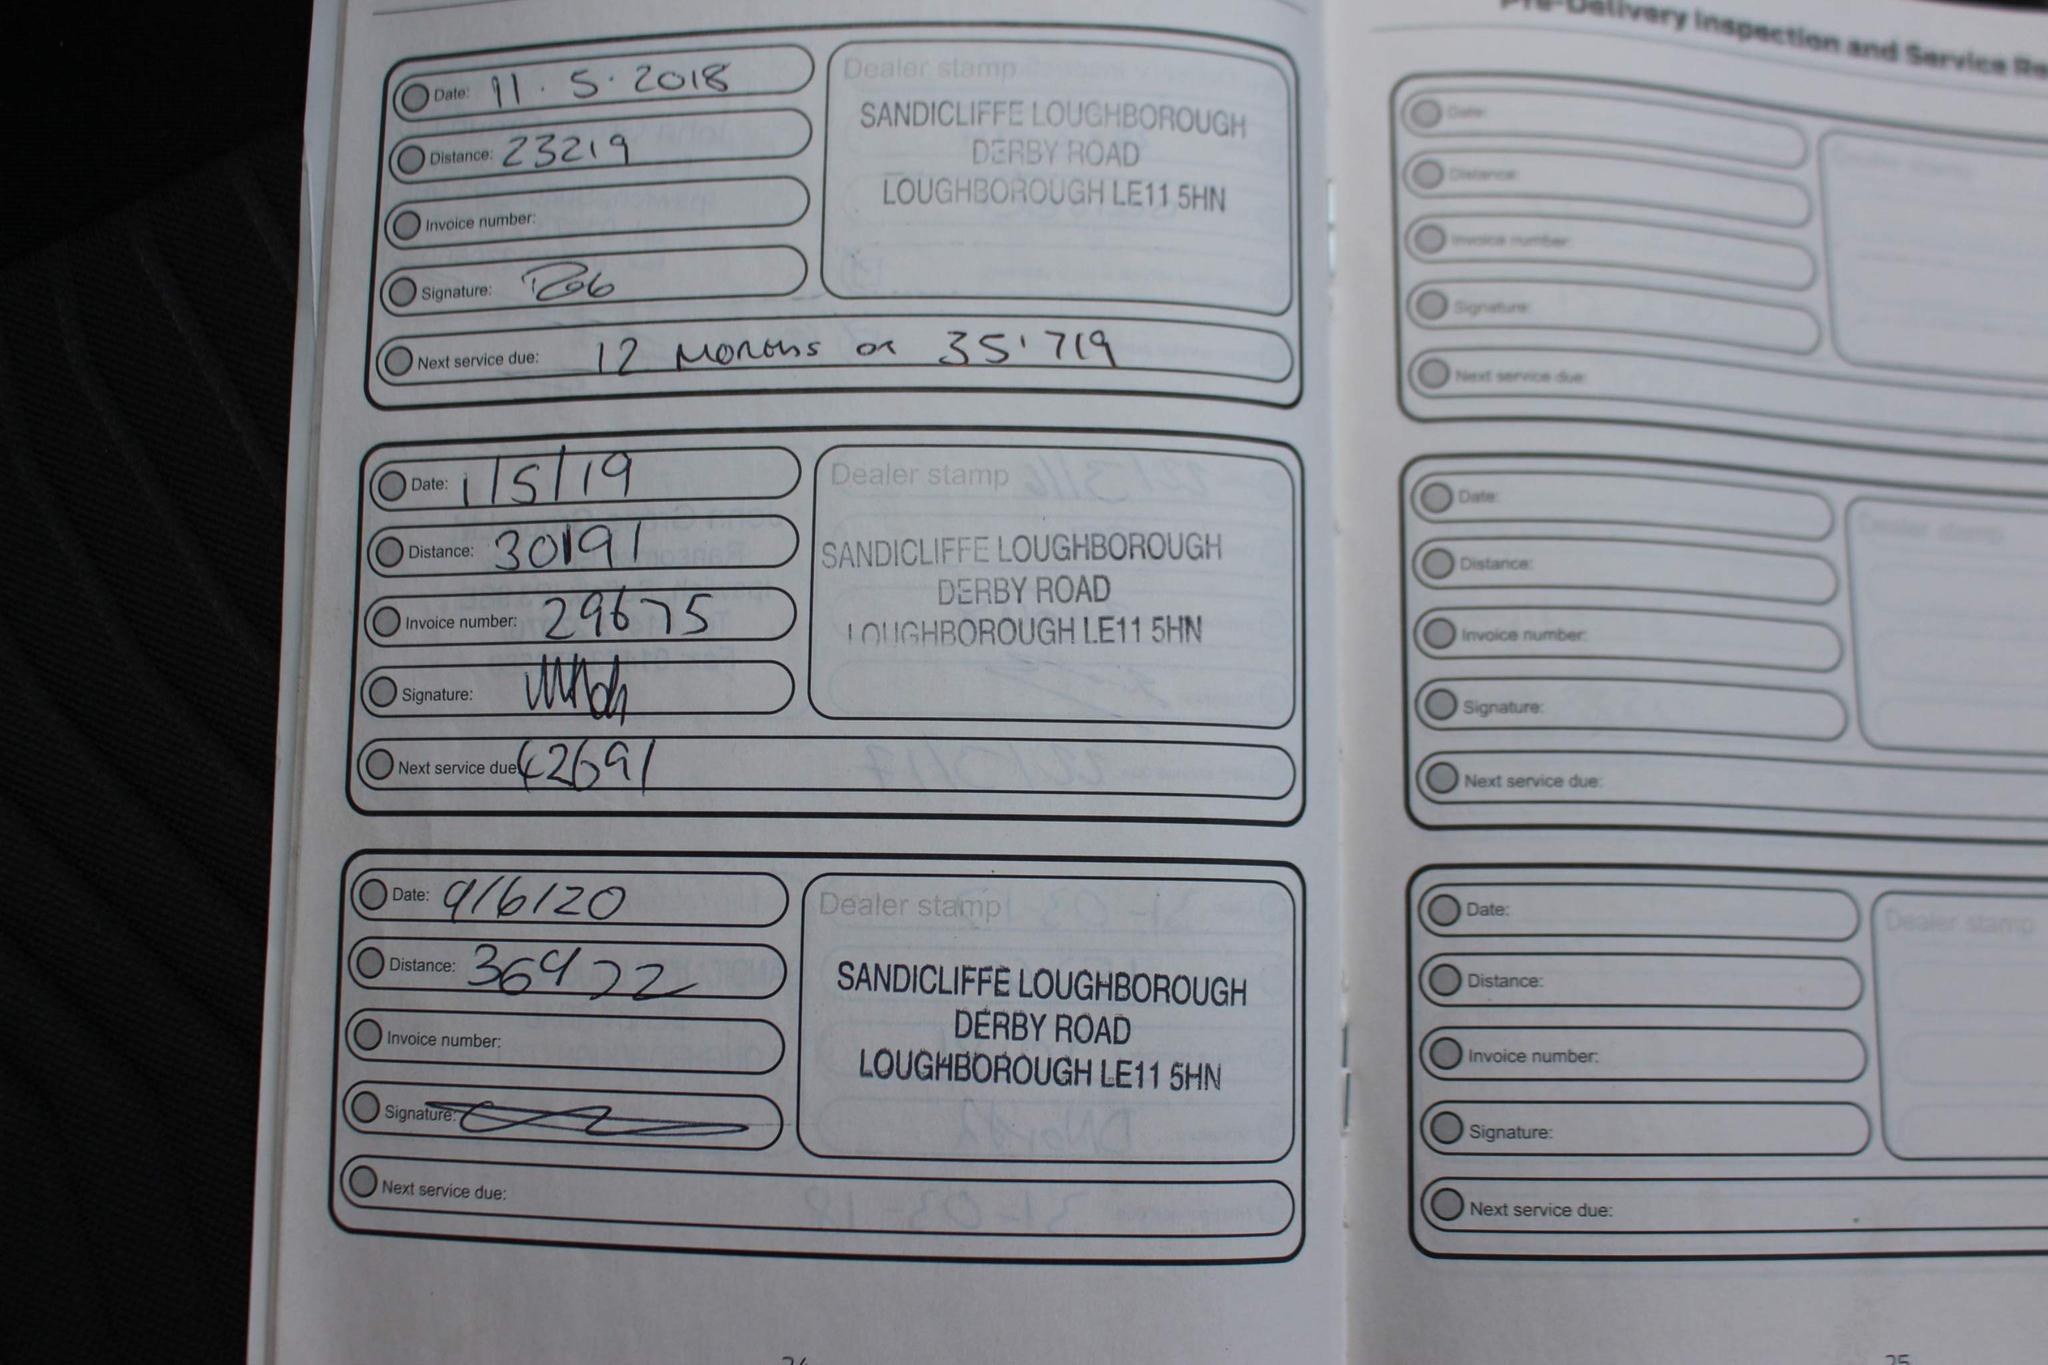 Pre-Delivery Inspection and Service Re
Date: 11.5.2018
Distance: 23219
Invoice number:
Signature: Rob
Next service due: 12 Months or 35.719
Dealer stamp
SANDICLIFFE LOUGHBOROUGH
DERBY ROAD
LOUGHBOROUGH LE11 5HN
Date: 1/5/19
Distance: 30191
Invoice number: 29675
Signature:
Next service due: 42691
Dealer stamp
SANDICLIFFE LOUGHBOROUGH
DERBY ROAD
LOUGHBOROUGH LE11 5HN
Date: 9/6/20
Distance: 36972
Invoice number:
Signature:
Next service due:
Dealer stamp
SANDICLIFFE LOUGHBOROUGH
DERBY ROAD
LOUGHBOROUGH LE11 5HN
Date:
Distance:
Invoice number:
Signature:
Next service due:
Dealer stamp
Date:
Distance:
Invoice number:
Signature:
Next service due:
Dealer stamp
Date:
Distance:
Invoice number:
Signature:
Next service due:
Dealer stamp